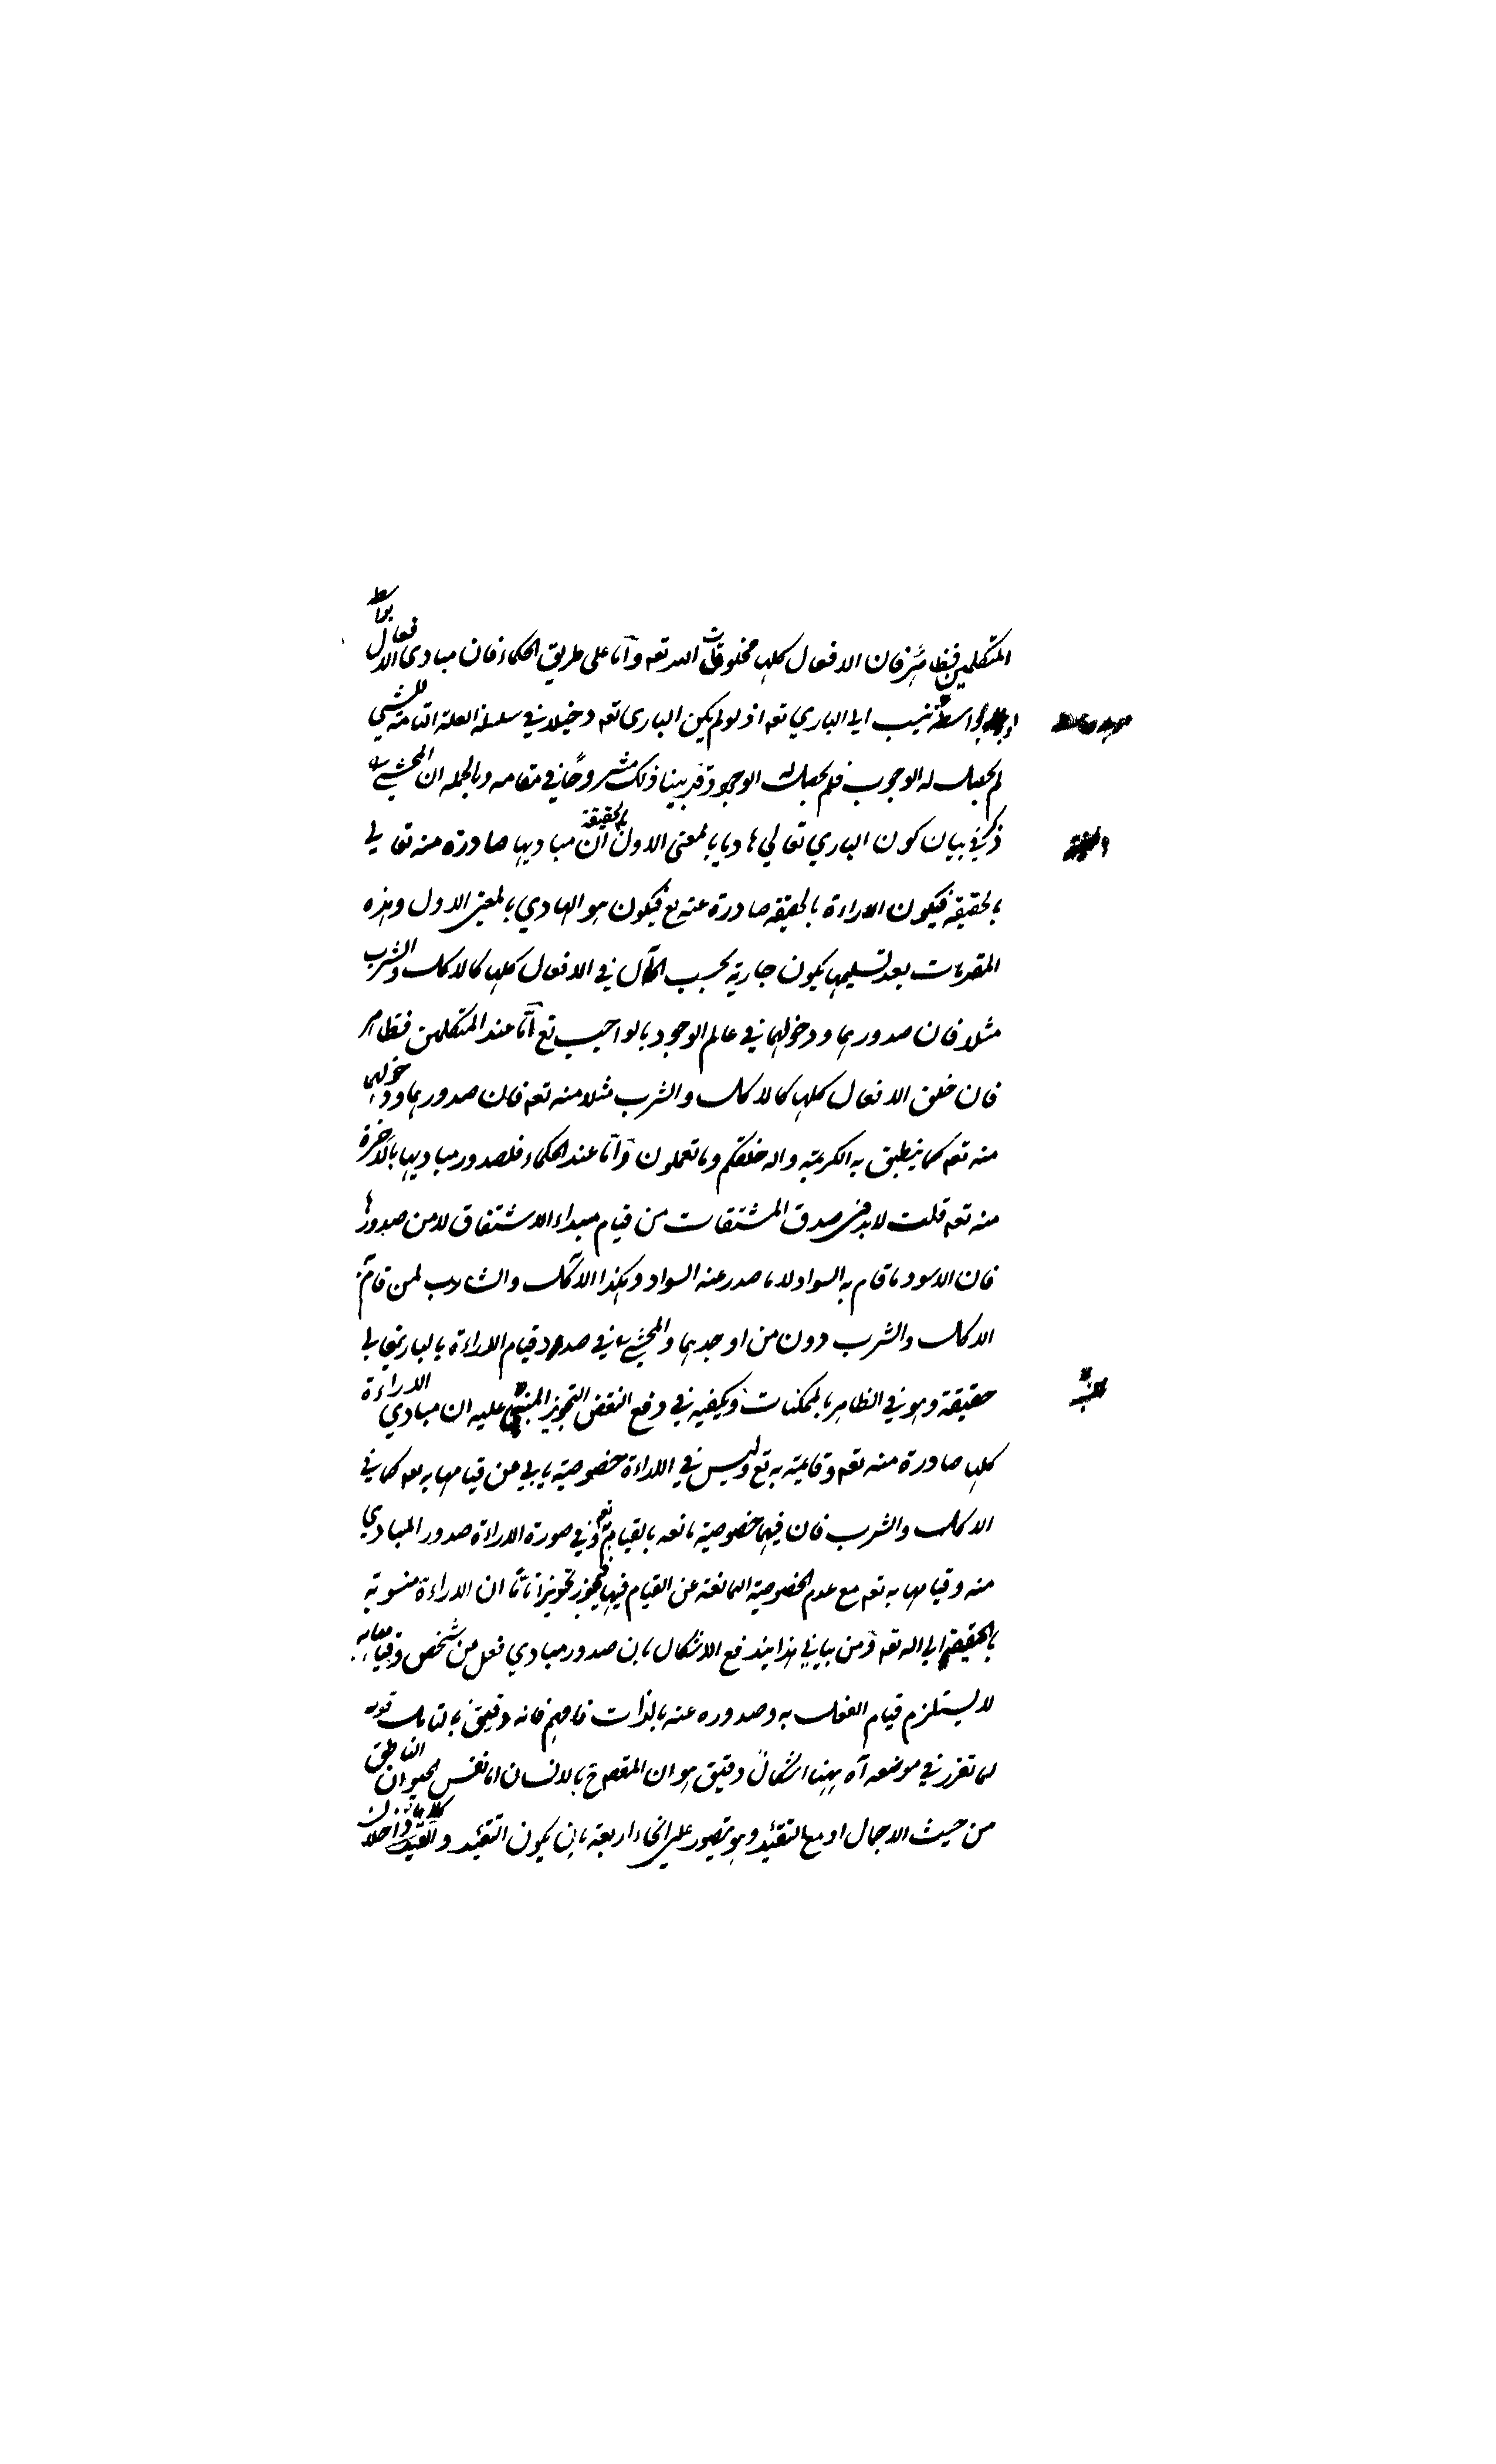 المتكلمين فظاهر فان الافعال كلها مخلوقات الله تعه وأما على طريق الحكماء فان مبادى الافعال بواسطة
او بلا واسطة ينسب الى الباري تعه اذ لو لم يكن البارى تعه دخيلا في سلسلة العلة التامة للشيء
لم يحصل له الوجوب فلم يحصل له الوجود وقد بينا ذلك مشروحًا في مقامه وبالجملة ان المحشي
ذكر في بيان كون الباري تعالي هاديا بالمعنى الاول بالحقيقة ان مباديها صادرة منه تعالي
بالحقيقة فيكون الاراءة بالحقيقة صادرة عنه تع فيكون هو الهادي بالمعنى الاول وهذه
المقدمات بعد تسليمها يكون جارية بحسب المآل في الافعال كلها كالاكل والشرب
مثلا فان صدورهما ودخولهما في عالم الوجود بالواجب تع أمّا عند المتكلمين فظاهر
فان خلق الافعال كلها كالاكل والشرب مثلا منه تعه فان صدورهما ودخولهما
منه تعه كما ينطبق به الكريمة والله خلقكم وما تعملون وأمّا عند الحكماء فلصدور مباديها بالاخرة
منه تعه قلت لابد في صدق المشتقات من قيام مبداء الاشتقاق لا من صدورها
فان الاسود ما قام به السواد لا ما صدر عنه السواد وهكذا الآكل والشارب لمن قام به
الاكل والشرب دون من اوجدهما والمحشي في صدد قيام الاراءة بالباري تعالي
حقيقة وهو في الظاهر بالممكنات ويكفيه في دفع النقض التجويز المبني عليه ان مبادي الاراءة
كلها صادرة منه تعه وقائمة به تع وليس في الاراءة خصوصية يابي عن قيامها به تعه كما في
الاكل والشرب فان فيهما خصوصية مانعة بالقيام به تعه وفي صورة الاراءة صدور المبادي
منه وقيامها به تعه مع عدم الخصوصية المانعة عن القيام فيها فيجوز تجويزا تامًّا ان الاراءة منسوبة
بالحقيقة الى الله تعه ومن بياني هذا يندفع الاشكال بان صدور مبادي فعل من شخص وقيامها به
لا يستلزم قيام الفعل به وصدوره عنه بالذات فافهم فانه دقيق بالتامل قوله
لما تقرر في موضعه آه ههنا اشكال دقيق هو ان المقصود بالانسان اما نفس الحيوان الناطق
من حيث الاجمال او مع التقيد وهو يتصور على انحاء اربعة بان يكون التقيد والقيد كلاهما داخلان